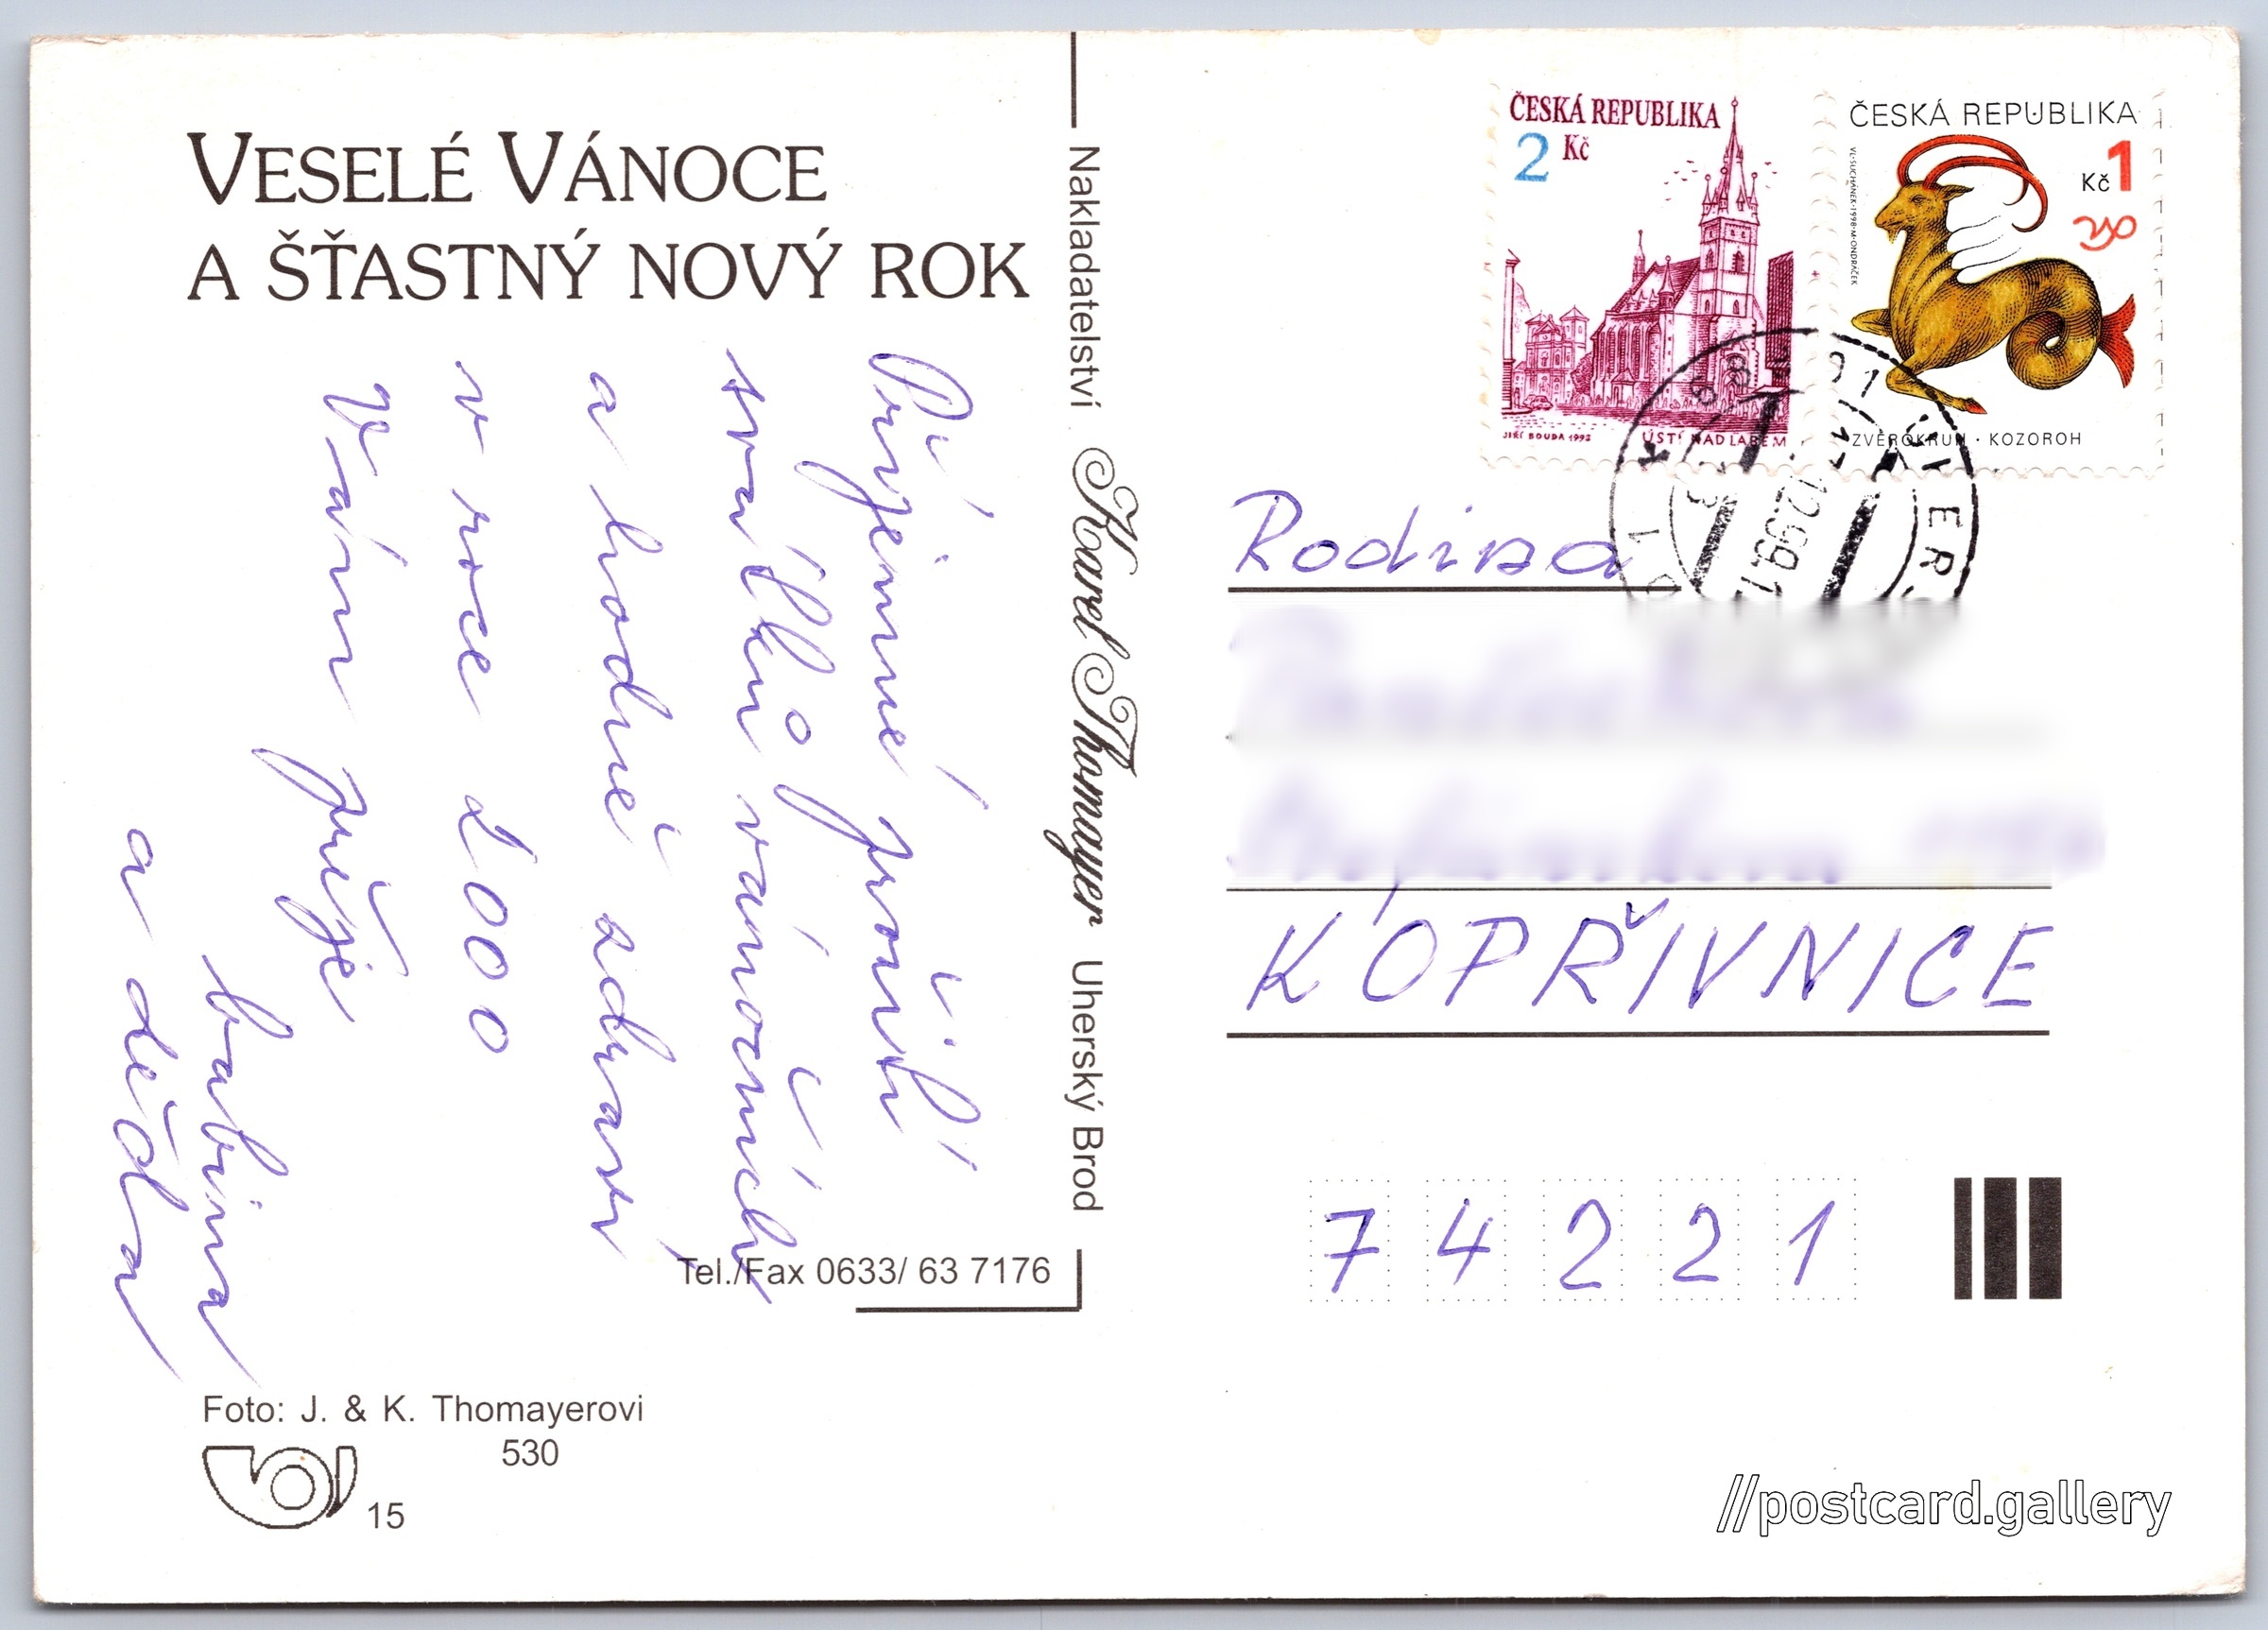 VESELÉ VÁNOCE
A ŠŤASTNÝ NOVÝ ROK
Příjemné prožití
svátků vánočních
a hodně zdraví
v roce 2000
Vám přeje
babina
a děda
Nakladatelství Karel Thomayer Uherský Brod
Tel./Fax 0633/ 63 7176
Foto: J. & K. Thomayerovi
530
15
ČESKÁ REPUBLIKA
2 Kč
JIŘÍ BOUDA 1992 ÚSTÍ NAD LABEM
ČESKÁ REPUBLIKA
Kč 1
VL·SUCHÁNEK·1998·M·ONDRÁČEK
ZVĚROKRUH · KOZOROH
12.99.1
Rodina
KOPŘIVNICE
74221
//postcard.gallery